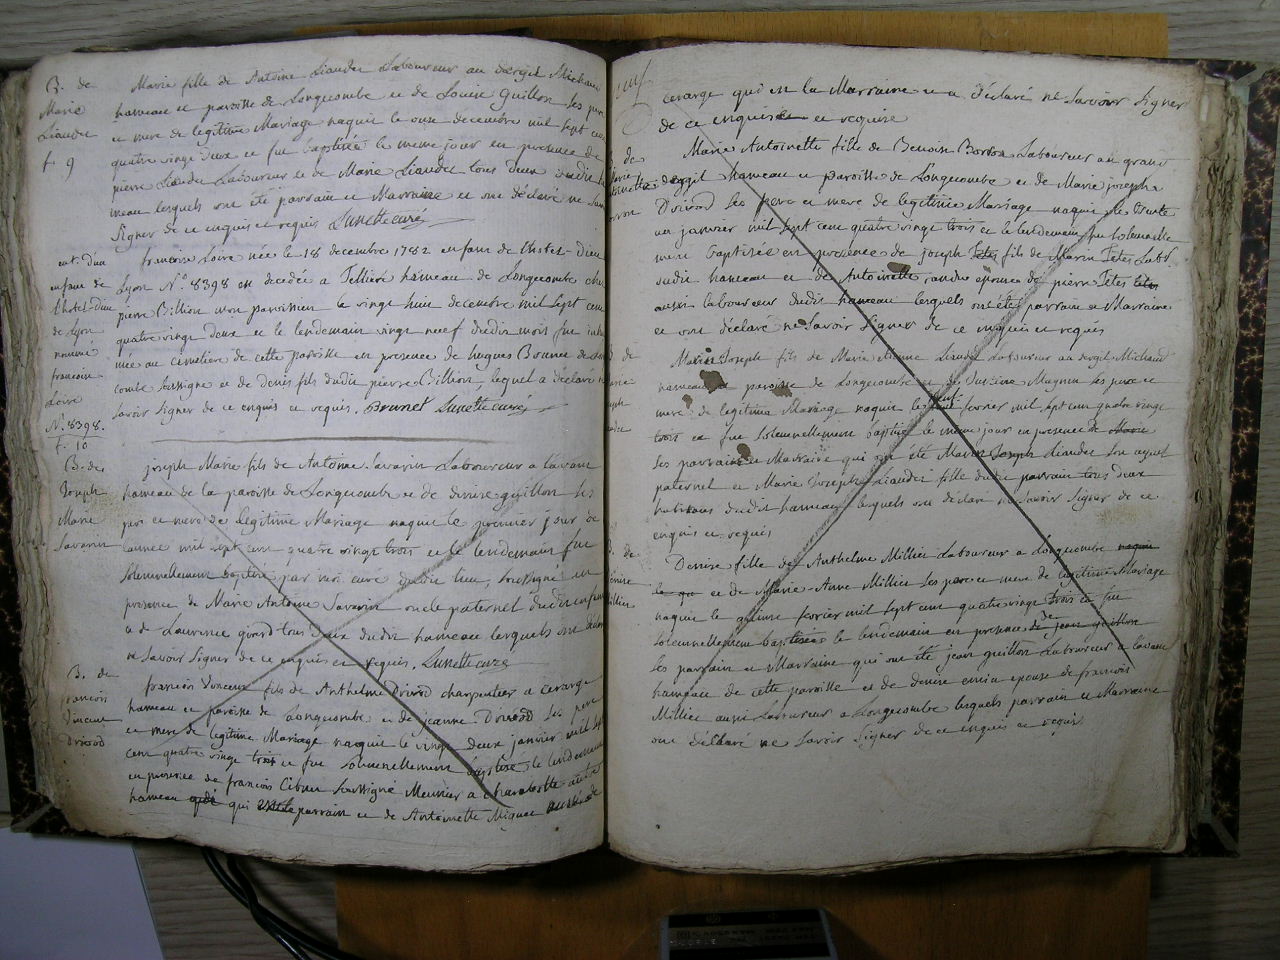 B. de
Marie
Liaudet
f. 9
Marie fille de Antoine Liaudet Laboureur au dergit Michaud
hameau et paroisse de Longecombe et de Louise Guillon ses pere
et mere de legitime Mariage naquit le onze decembre mil sept cent
quatre vingt deux et fut baptisée le meme jour en presence de
pierre Liaudet Laboureur et de Marie Liaudet tous deux dudit ha
meau lesquels ont été parrain et Marraine et ont déclaré ne savoir
signer de ce enquis et requis Lunette curé
ent. d'un
enfant de
l'hotel-Dieu
de Lyon
nommé
francoise
Loire
N.º 8398.
f. 10
francoise Loire née le 18 decembre 1782 enfant de l'hotel-Dieu
Lyon N.º 8398 est decedée a Tellière hameau de Longecombe chez
pierre Billion mon paroissien le vingt huit decembre mil sept cent
quatre vingt deux et le lendemain vingt neuf dudit mois fut inhu
mée au cimetière de cette paroisse en presence de hugues Brunet de
combe soussigné et de denis fils dudit pierre Billion, lequel a déclaré ne
savoir signer de ce enquis et requis. Brunet Lunette curé
B. de
Joseph
Marie
Savarin
joseph Marie fils de Antoine Savarin Laboureur a Lavant
hameau de la paroisse de Longecombe et de denise guillon ses
pere et mere de legitime Mariage naquit le premier jour de
l'année mil sept cent quatre vingt trois et le lendemain fut
solemnellement baptisé par moi curé dudit lieu, soussigné en
presence de Marie Antoine Savarin oncle paternel dudit enfant
et de Laurence girod tous deux dudit hameau lesquels ont déclaré
ne savoir signer de ce enquis et requis. Lunette curé
B. de
francois
Vincent
Driood
francois Vincent fils de Anthelme Driood charpentier a cerarge
hameau et paroisse de Longecombe et de jeanne Driood ses pere
et mere de legitime Mariage naquit le vingt deux janvier mil sept
cent quatre vingt trois et fut solemnellement baptisé le lendemain
en presence de francois Cibert soussigné Meunier a charabotte autre
hameau qui parrain et de Antoinette Miguet
cerarge qui est la Marraine et a déclaré ne savoir signer
de ce enquise et requise
Marie Antoinette fille de Benoit Borron Laboureur au grand
dergit hameau et paroisse de Longecombe et de Marie josephe
Driood ses pere et mere de legitime Mariage naquit le trente
un janvier mil sept cent quatre vingt trois et le lendemain fut solemnelle
ment baptisée en presence de joseph Tetes fils de Marin Tetes Lab.
audit hameau et de Antoinette epouse de pierre Tetes
aussi laboureur dudit hameau lesquels ont été parrain et Marraine
et ont déclaré ne savoir signer de ce enquis et requis
Marie Joseph fils de Marie etienne Liaudet Laboureur au dergit Michaud
hameau et paroisse de Longecombe et de Magnin ses pere et
mere de legitime Mariage naquit le neuf fevrier mil sept cent quatre vingt
trois et fut solemnellement baptisé le meme jour en presence de Marie
ses parrain et Marraine qui ont été Marie Joseph Liaudet son ayeul
paternel et Marie Josephe Liaudet fille dudit parrain tous deux
habitans dudit hameau lesquels ont declaré ne savoir signer de ce
enquis et requis
Denise fille de Anthelme Millier Laboureur a Longecombe naquit
le qu et de Marie-Anne Millier ses pere et mere de legitime Mariage
naquit le quinze fevrier mil sept cent quatre vingt trois et fut
solemnellement baptisée le lendemain en presence de jean guillon
ses parrain et Marraine qui ont été jean guillon Laboureur a Lavant
hameau de cette paroisse et de denise epouse de francois
Millier aussi Laboureur a Longecombe lesquels parrain et Marraine
ont déclaré ne savoir signer de ce enquis et requis